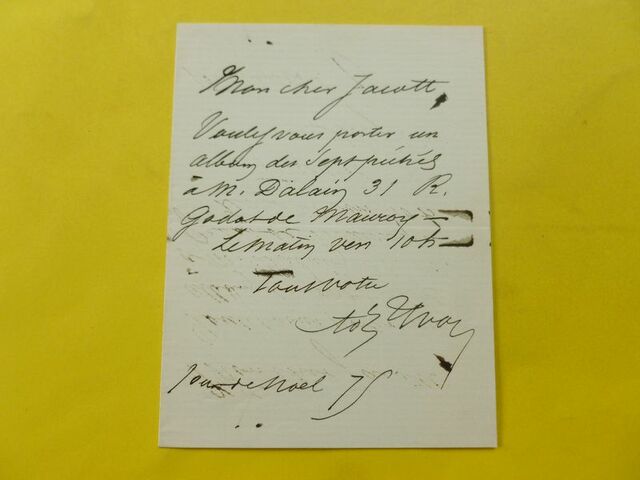 Mon cher Jacott,
Voulez vous porter un
album des Sept péchés
à M. Dalain 31 R.
Godot de Mauroy —
Le matin vers 10h
Tout votre
jour de Noel 75